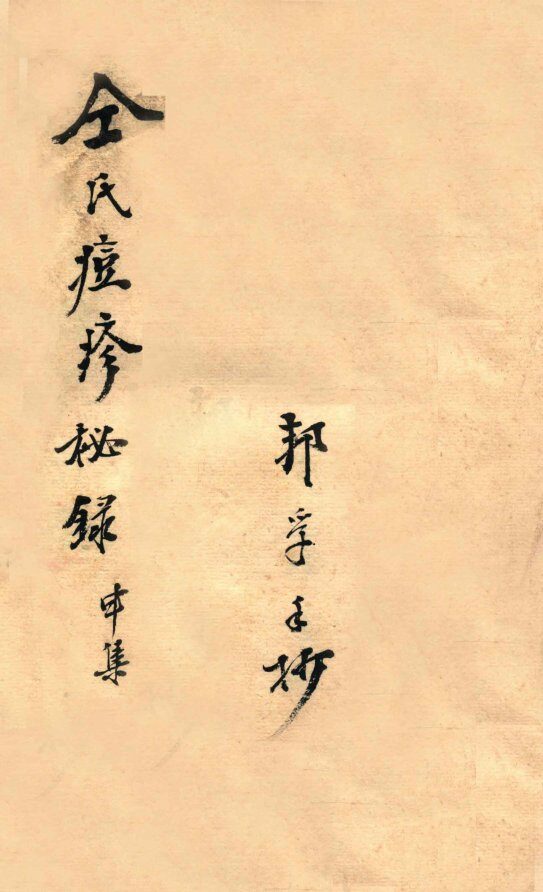 邦孚手抄
仝氏痘疹秘録 中集